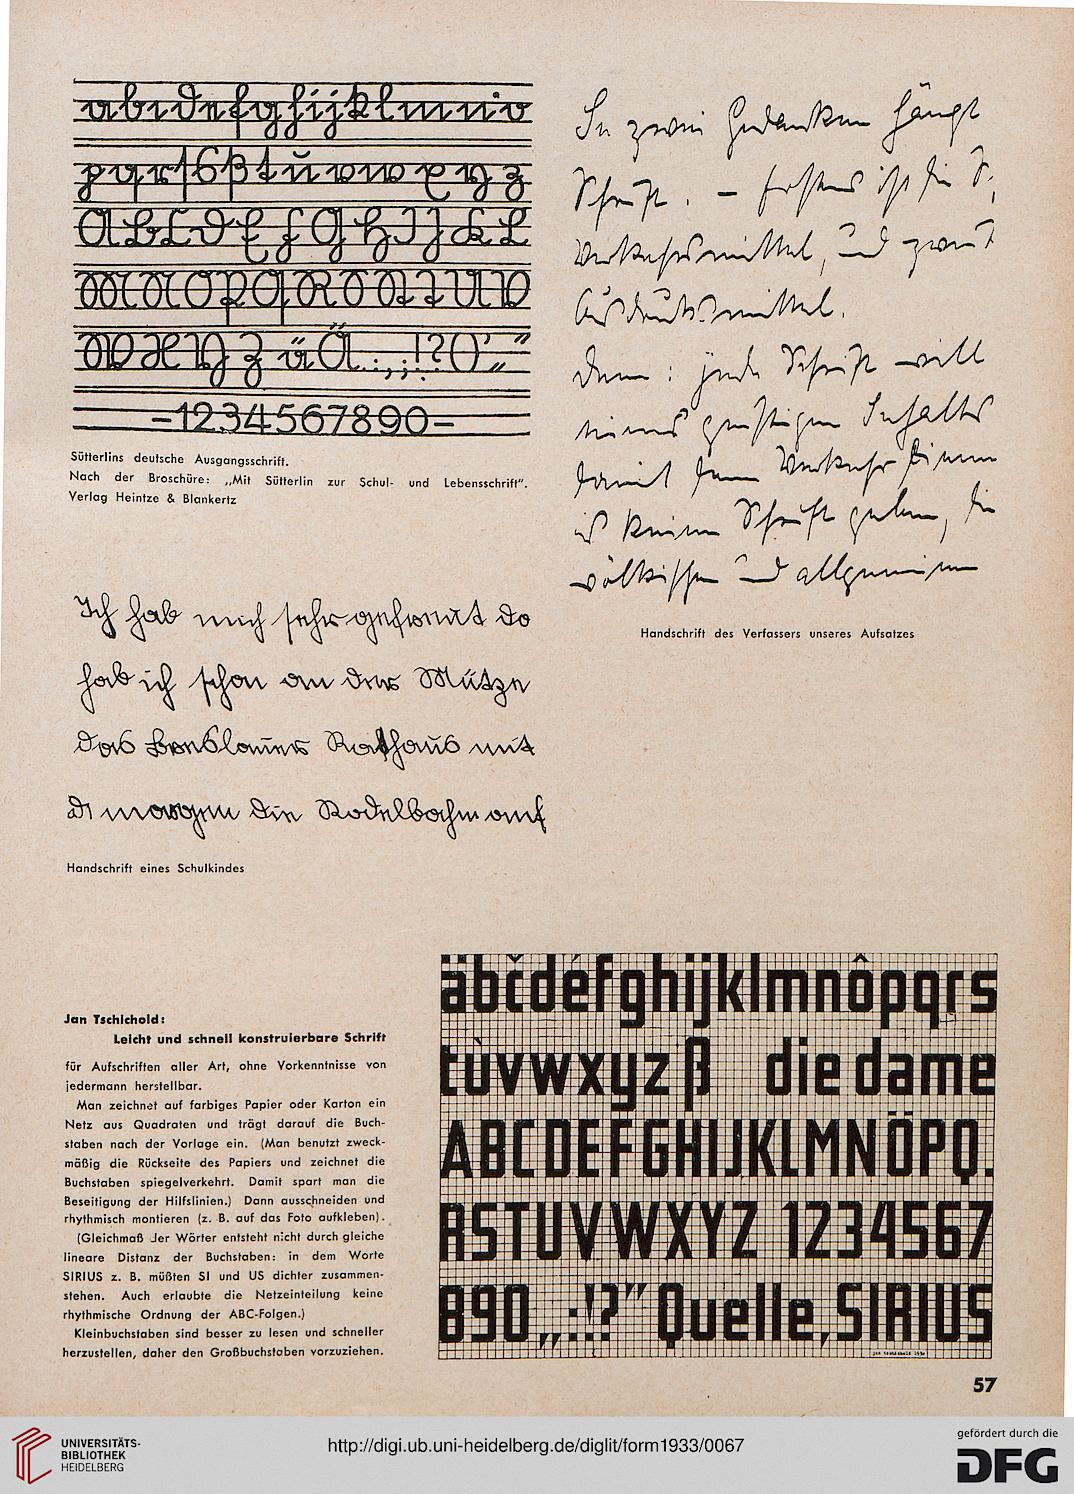 a b c d e f g h i j k l m n o
p q r ſ s ß t u v w x y z
A B C D E F G H I J K L
M N O P Q R S St T U V
W X Y Z ä Ä . : , ; ! ? ( ) ' „ "
–1234567890–
Sütterlins deutsche Ausgangsschrift.
Nach der Broschüre: „Mit Sütterlin zur Schul- und Lebensschrift".
Verlag Heintze & Blankertz
In zwei Gedanken hängt
Schrift. – Erstens ist die S.
Verkehrsmittel, und zweit
Ausdrucksmittel.
Denn: jede Schrift will
eines geistigen Inhalts
damit dem Verkehr dienen
es keine Schrift geben, die
völkischen und allgemeinen
Handschrift des Verfassers unseres Aufsatzes
Ich hab mich sehr gefreut do
hab ich schon an der Mütze
das Breslauer Rathaus mit
di morgen die Rodelbahn auf
Handschrift eines Schulkindes
Jan Tschichold:
Leicht und schnell konstruierbare Schrift
für Aufschriften aller Art, ohne Vorkenntnisse von
jedermann herstellbar.
Man zeichnet auf farbiges Papier oder Karton ein
Netz aus Quadraten und trägt darauf die Buch-
staben nach der Vorlage ein. (Man benutzt zweck-
mäßig die Rückseite des Papiers und zeichnet die
Buchstaben spiegelverkehrt. Damit spart man die
Beseitigung der Hilfslinien.) Dann ausschneiden und
rhythmisch montieren (z. B. auf das Foto aufkleben).
(Gleichmaß der Wörter entsteht nicht durch gleiche
lineare Distanz der Buchstaben: in dem Worte
SIRIUS z. B. müßten SI und US dichter zusammen-
stehen. Auch erlaubte die Netzeinteilung keine
rhythmische Ordnung der ABC-Folgen.)
Kleinbuchstaben sind besser zu lesen und schneller
herzustellen, daher den Großbuchstaben vorzuziehen.
äbčdéfghijklmnôpqrs
tùvwxyzß die dame
ABCDEFGHIJKLMNÖPQ.
RSTUVWXYZ 1234567
890„.:!?" Quelle, SIRIUS
jan tschichold 1930
57
UNIVERSITÄTS-
BIBLIOTHEK
HEIDELBERG
http://digi.ub.uni-heidelberg.de/diglit/form1933/0067
gefördert durch die
DFG